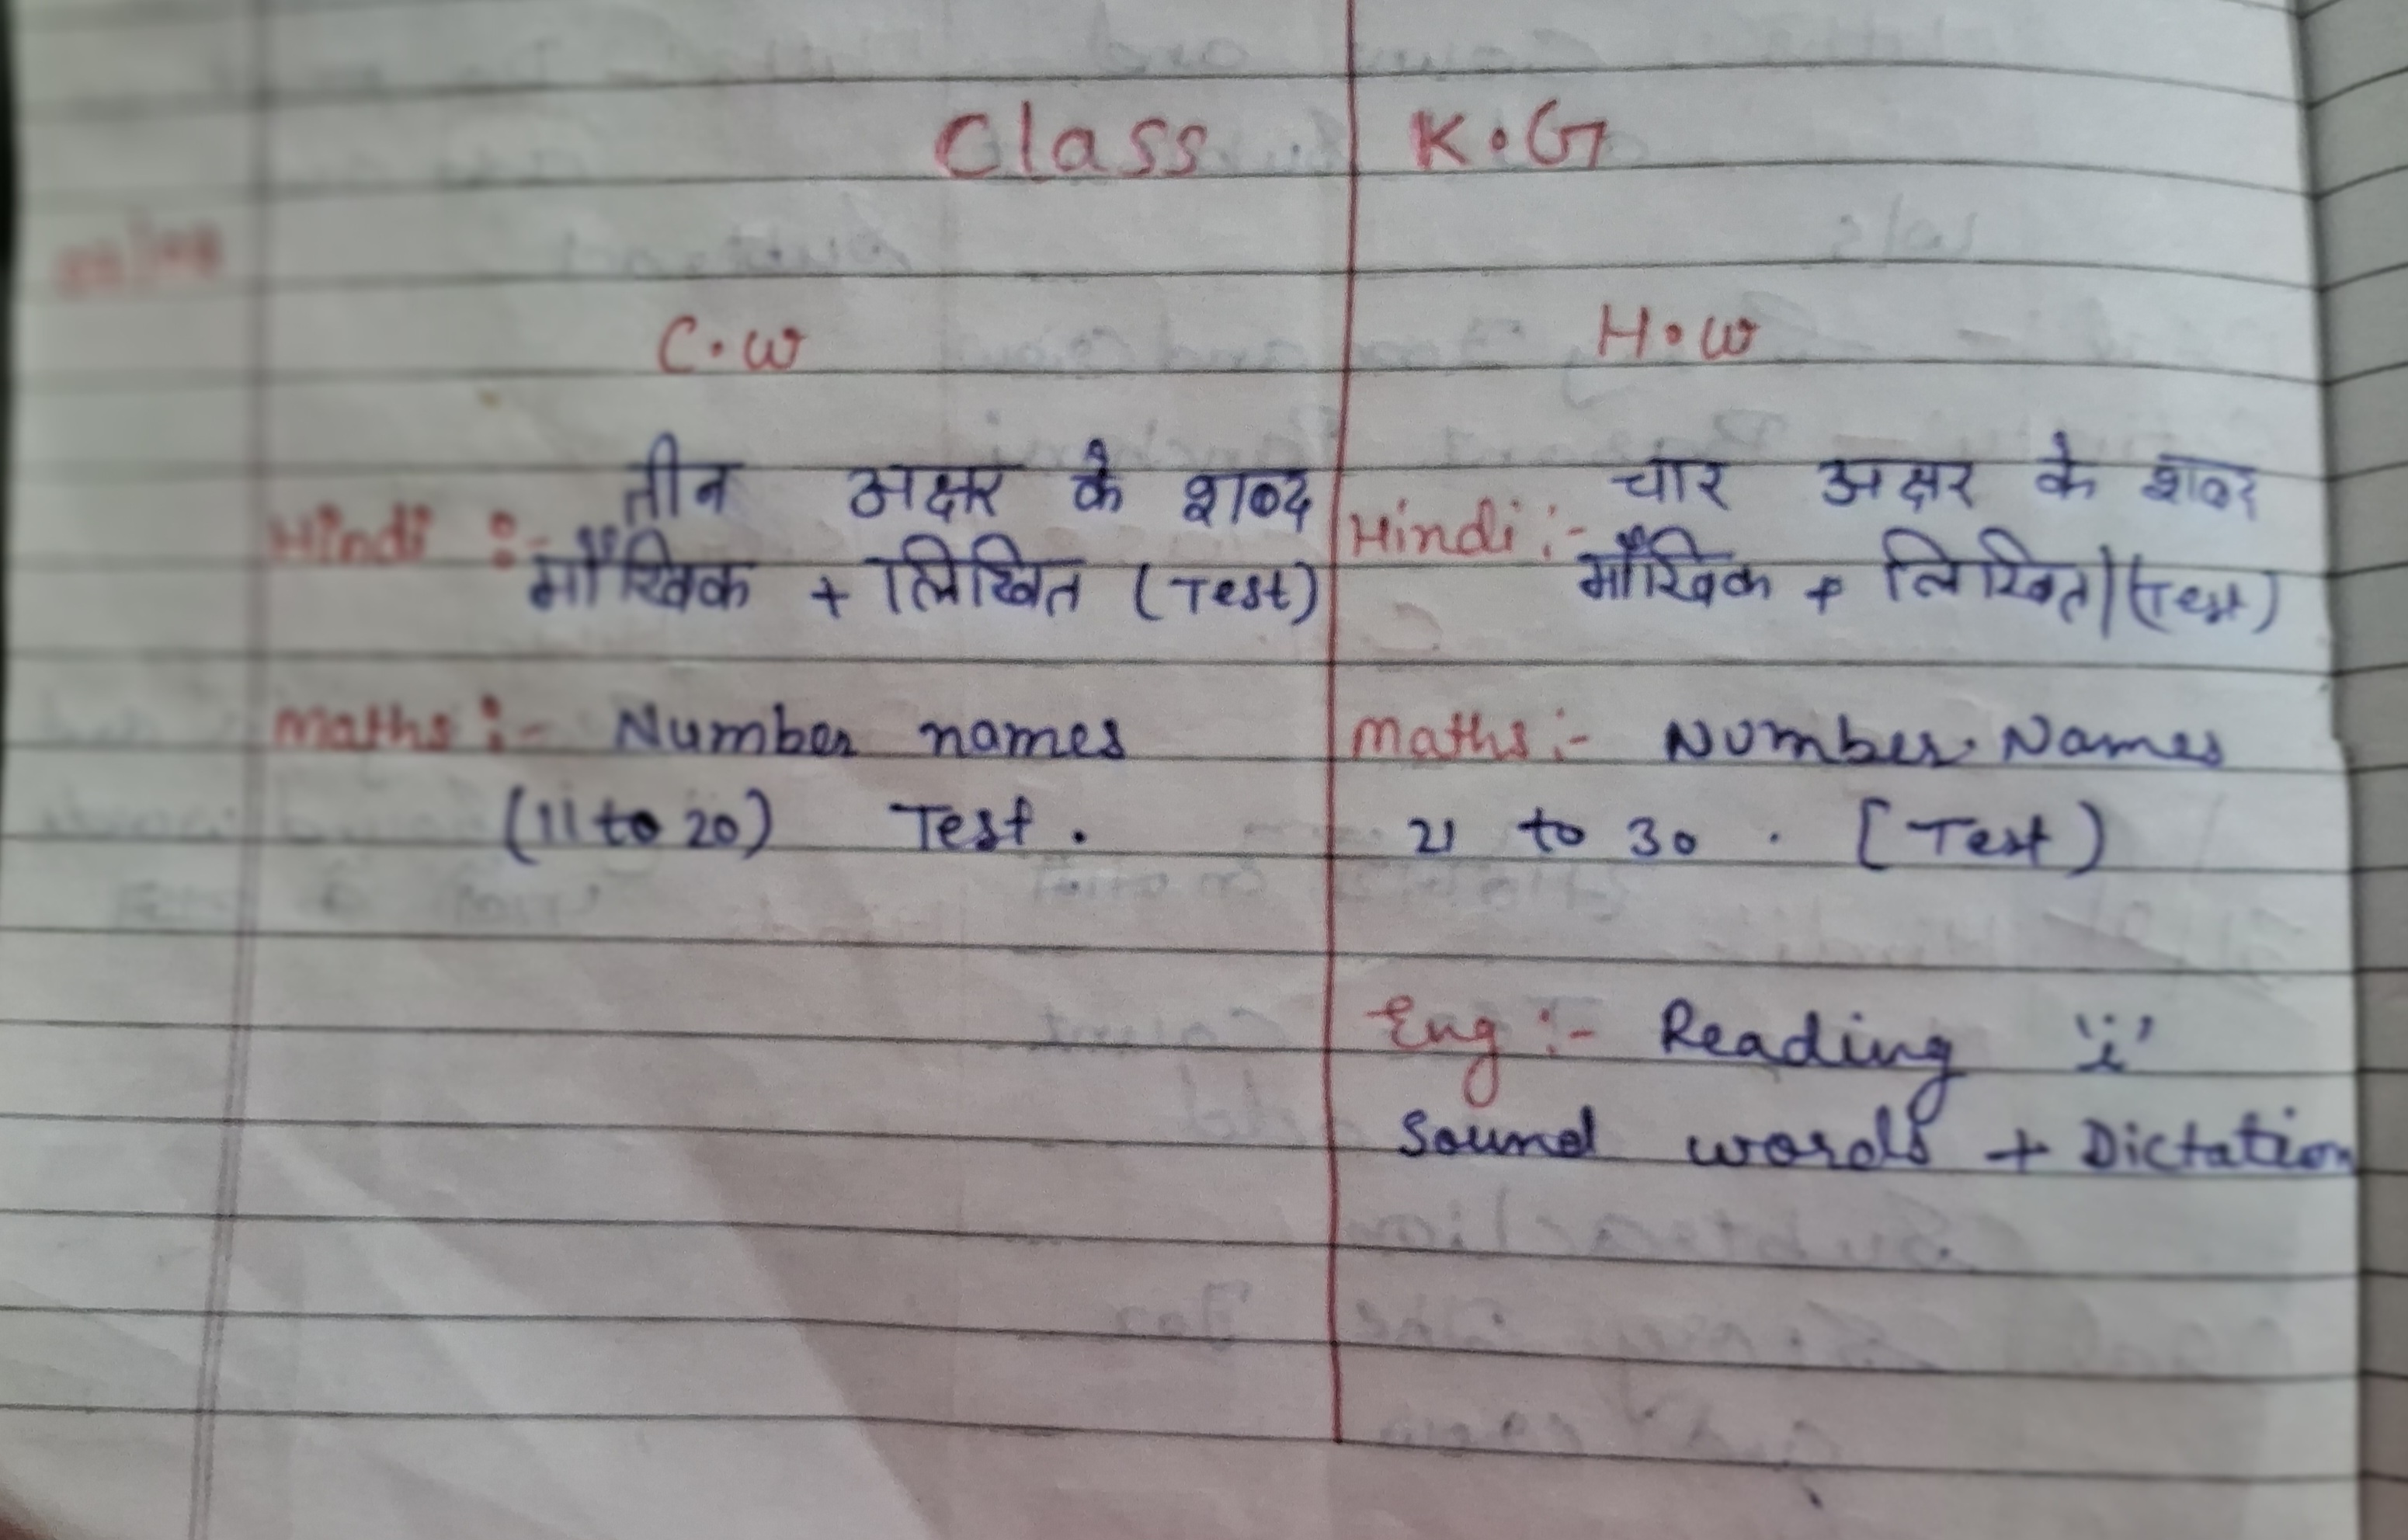 Class K.G
C.W
H.W
Hindi :- तीन अक्षर के शब्द
मौखिक + लिखित (Test)
Maths :- Number names
(11 to 20) Test.
Hindi :- चार अक्षर के शब्द
मौखिक + लिखित।(Test)
Maths :- Number Names
21 to 30 . [Test)
Eng :- Reading 'i'
Sound words + Dictation